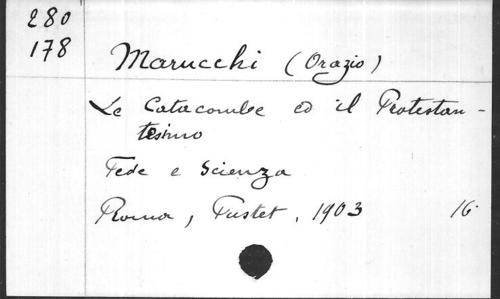 280
178
Marucchi (Orazio)
Le Catacombe ed il Protestan-
tesimo
Fede e Scienza
Roma, Pustet, 1903 16.